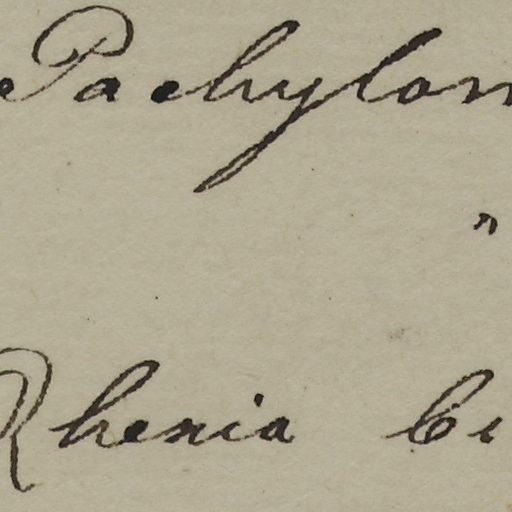 Pachylom
"
Rhenia bi